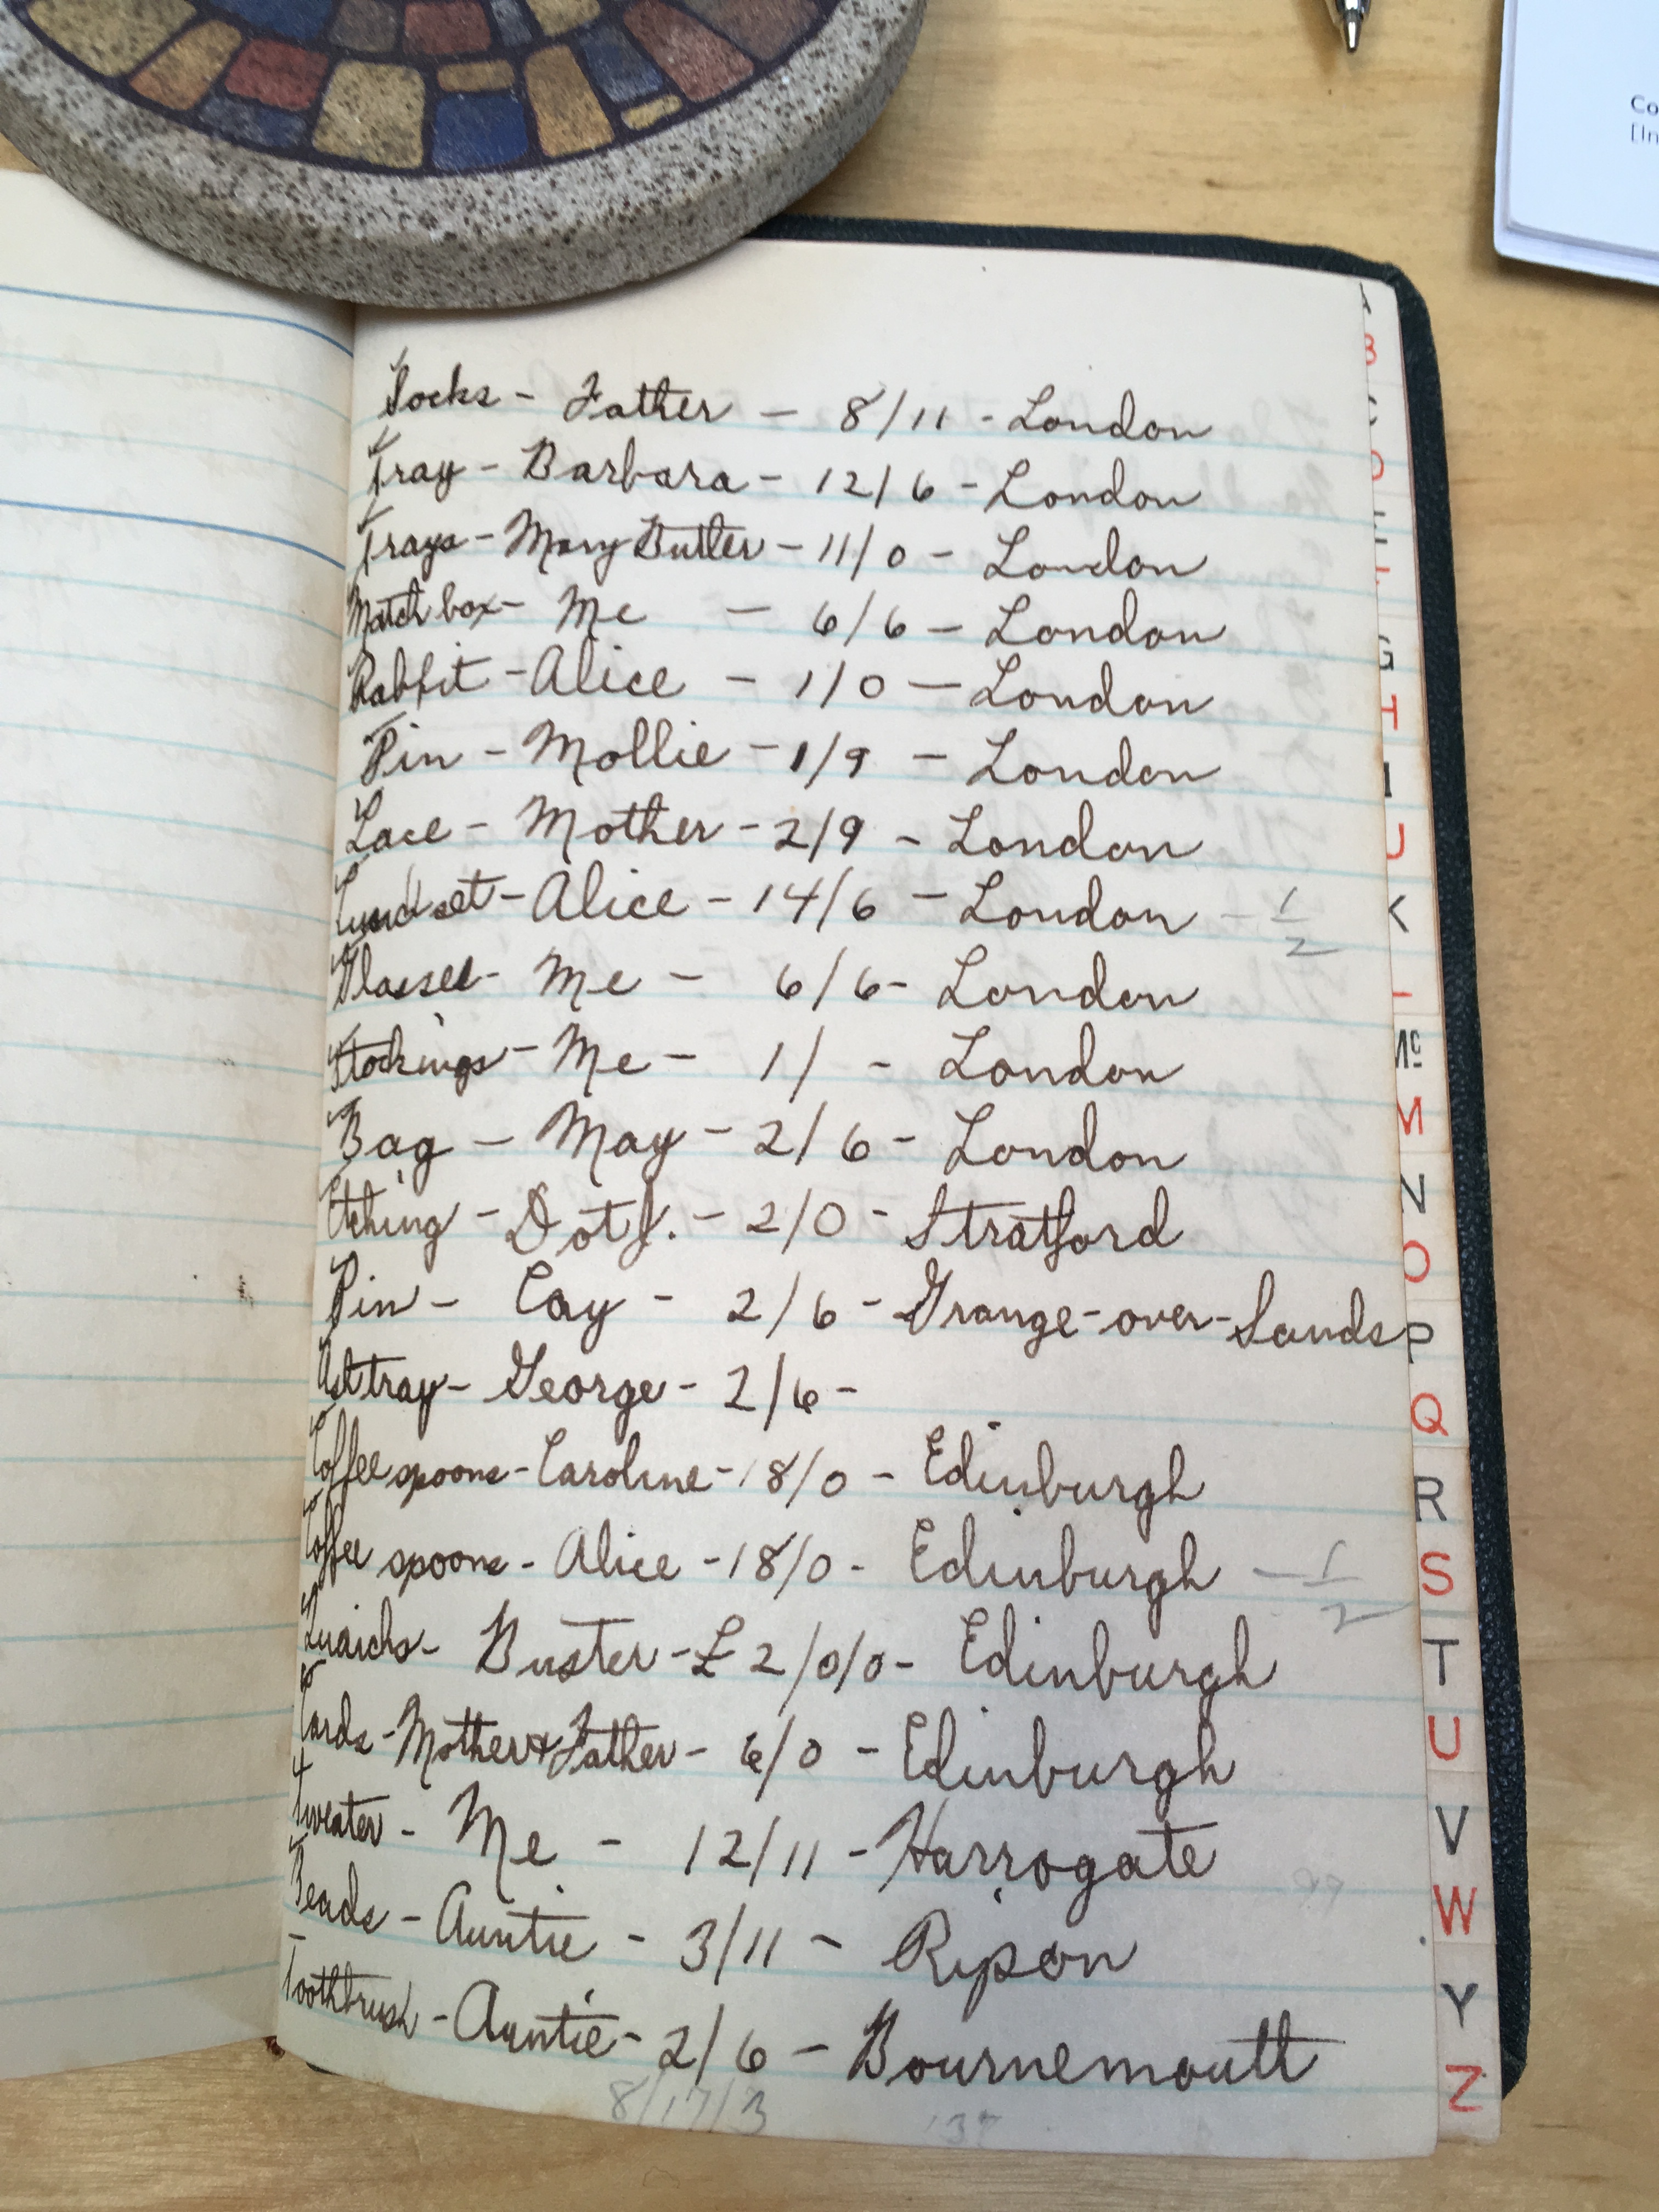 Co
[In
Socks - Father - 8/11 - London
Tray - Barbara - 12/6 - London
Trays - Mary Butler - 11/0 - London
Match box - Me - 6/6 - London
Rabbit - Alice - 1/0 - London
Pin - Mollie - 1/9 - London
Lace - Mother - 2/9 - London
set - Alice - 14/6 - London - 1/2
Glasses - Me - 6/6 - London
Stockings - Me - 1/ - London
Bag - May - 2/6 - London
Etching - Dot J. - 2/0 - Stratford
Pin - Cay - 2/6 - Grange-over-Sands
Ash tray - George - 2/6 -
Coffee spoons - Caroline - 18/0 - Edinburgh
Coffee spoons - Alice - 18/0 - Edinburgh - 1/2
Quaichs - Buster - £2/0/0 - Edinburgh
Cards - Mother & Father - 6/0 - Edinburgh
Sweater - Me - 12/11 - Harrogate
Beads - Auntie - 3/11 - Ripon
Toothbrush - Auntie - 2/6 - Bournemouth
8/17/3
B
G
H
I
J
K
Mc
M
N
O
P
Q
R
S
T
U
V
W
Y
Z